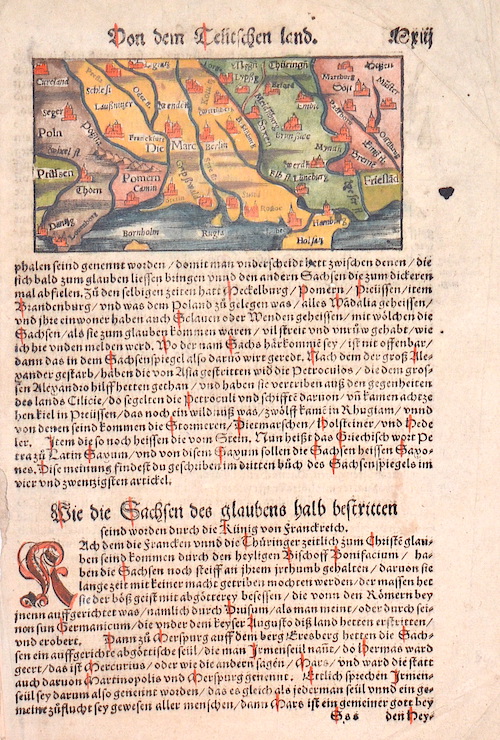 Von dem Teütschen land.
Curland
Schlesi
Laußnitzer
Seger
Pola
Die Marc
Berlin
Prüssen
Thoen
Pomern
Camin
Dantzig
Bornholm
Rugia
Hamburg
Holsatz
Lüneburg
Frießlād
Thüringē
Hessen
Marpurg
Münster
Breme
phalen seind genennt worden / domit man vnderscheidt hett zwischen denen / die
sich bald zum glauben liessen bringen vnnd den andern Sachsen die zum dickeren
mal abfielen. Zů den selbigen zeiten hatt Meckelburg / Pomern / Preüssen / item
Brandenburg / vnd was dem Poland zů gelegen was / alles Wādalia geheissen /
vnd ihre einwoner haben auch Sclauen oder Wenden geheissen / mit wölchen die
Sachsen / als sie zum glauben kommen waren / vil streit vnd vnrůw gehabt / wie
ich hie vnden melden werd. Wo der nam Sachs härkomme sey / ist nit offenbar /
dann das in dem Sachsenspiegel also daruō wirt geredt. Nach dem der groß Ale-
xander gestarb / haben die von Asia gestritten wid die Petroculos / die dem gros-
sen Alexandro hilff hetten gethan / vnd haben sie vertriben auß den gegenheiten
des lands Cilicie / do segelten die Petroculi vnd schifftē daruon / vñ kamen achtze
hen kiel in Preüssen / das noch ein wildnuß was / zwölff kamē in Rhugiam / vnnd
von denen seind kommen die Stormeren / Dietmarschen / Holsteiner / vnd Hede
ler. Item die so noch heissen die vom Stein. Nun heißt das Griechisch wort Pe
tra zů Latin Saxum / vnd von disem Saxum sollen die Sachsen heissen Saxo-
nes. Dise meinung findest du geschriben im dritten bůch des Sachsenspiegels im
vier vnd zwentzigsten artickel.
Wie die Sachsen des glaubens halb bestritten
seind worden durch die Künig von Franckreich.
NAch dem die Francken vnnd die Thüringer zeitlich zum Christē glau-
ben seind kommen durch den heyligen Bischoff Bonifacium / ha-
ben die Sachsen noch steiff an jhrem jrrthumb gehalten / daruon sie
lange zeit mit keiner macht getriben mochten werden / der massen het
sie der böß geist mit abgötterey besessen / die vonn den Römern bey
jnenn auffgerichtet was / nämlich durch Drusum / als man meint / oder durch sei-
non sun Germanicum / die vnder dem keyser Augusto diß land hetten erstritten /
vnd erobert. Dann zů Merspurg auff dem berg Eresberg hetten die Sach-
sen ein auffgerichte abgöttische seül / die man Irmenseül naūt / do Hermas ward
geert / das ist Mercurius / oder wie die andern sagen / Mars / vnd ward die statt
auch daruon Martinopolis vnd Merspurg genennt. Etlich sprechen Irmen-
seül sey darum also genennt worden / das es gleich als jederman seül vnnd ein ge-
meine zůflucht sey gewesen aller menschen / dann Mars ist ein gemeiner gott bey
Sss den Hey-